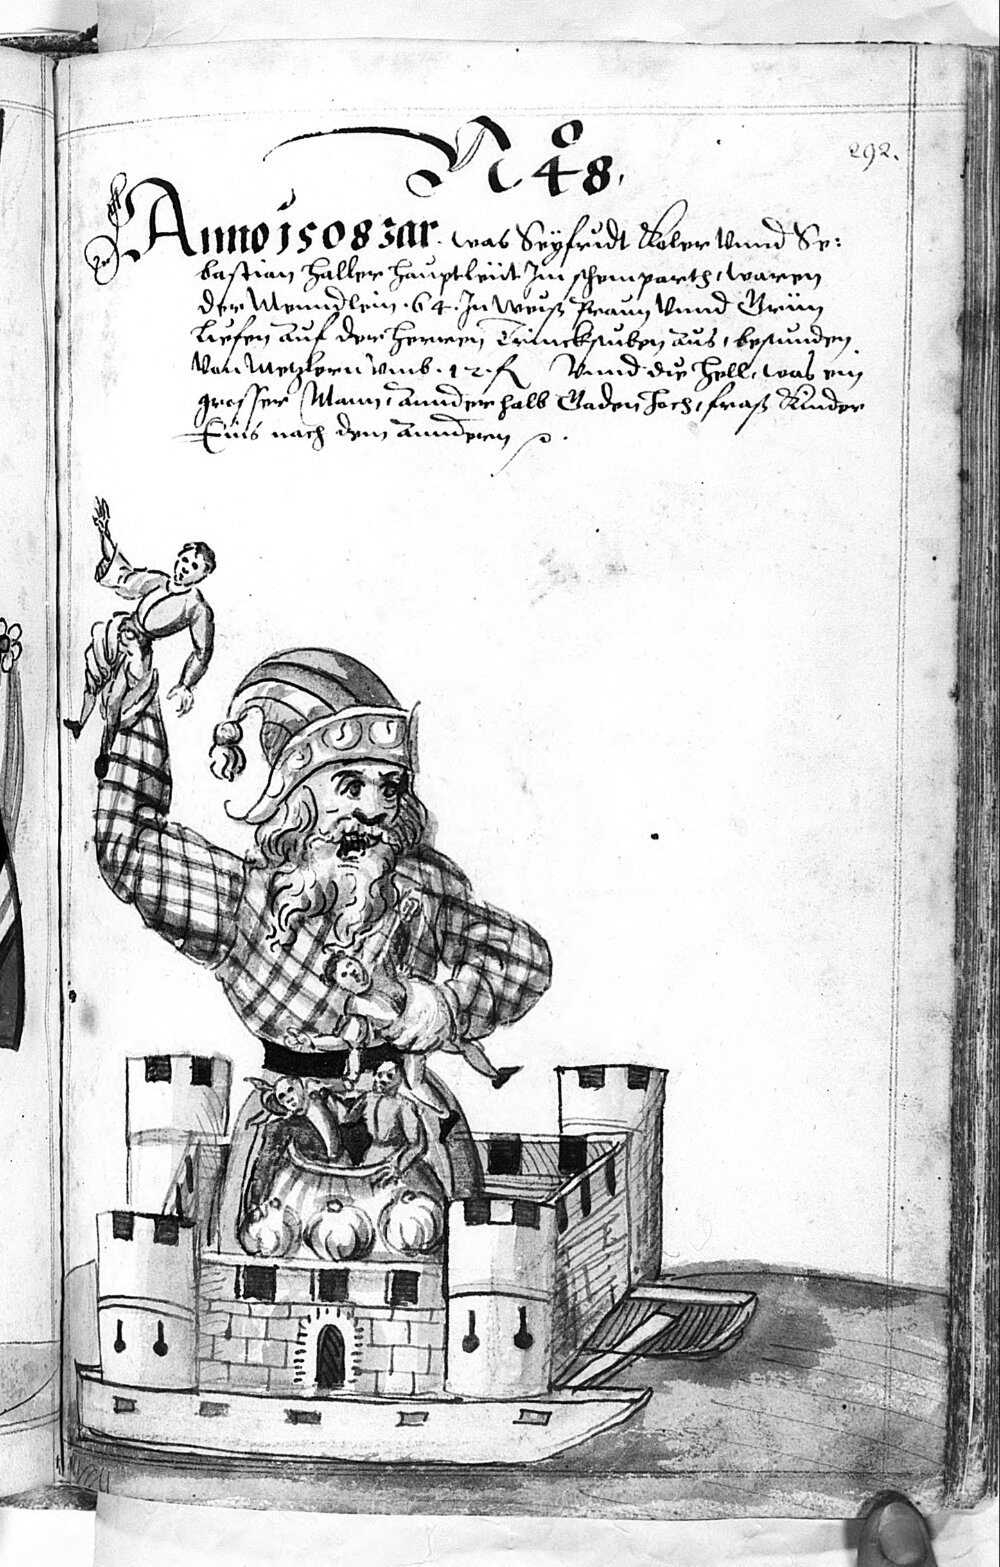 No 48.
292.
Anno 1508 Jar. was Seÿfridt Koler Vnnd Se:
bastian Haller Hauptleüt Im schemparth, waren
der Menndlein .64. In Weiß Praun Vnnd Grün
Liefen auf der Herren Trinckstuben aus, bestunden
Von Metzkern vmb .12. fl Vnnd die Hell, was ein
grosser Mann, annderhalb Gaden Hoch, fraß Kinder
Eins nach dem anndern